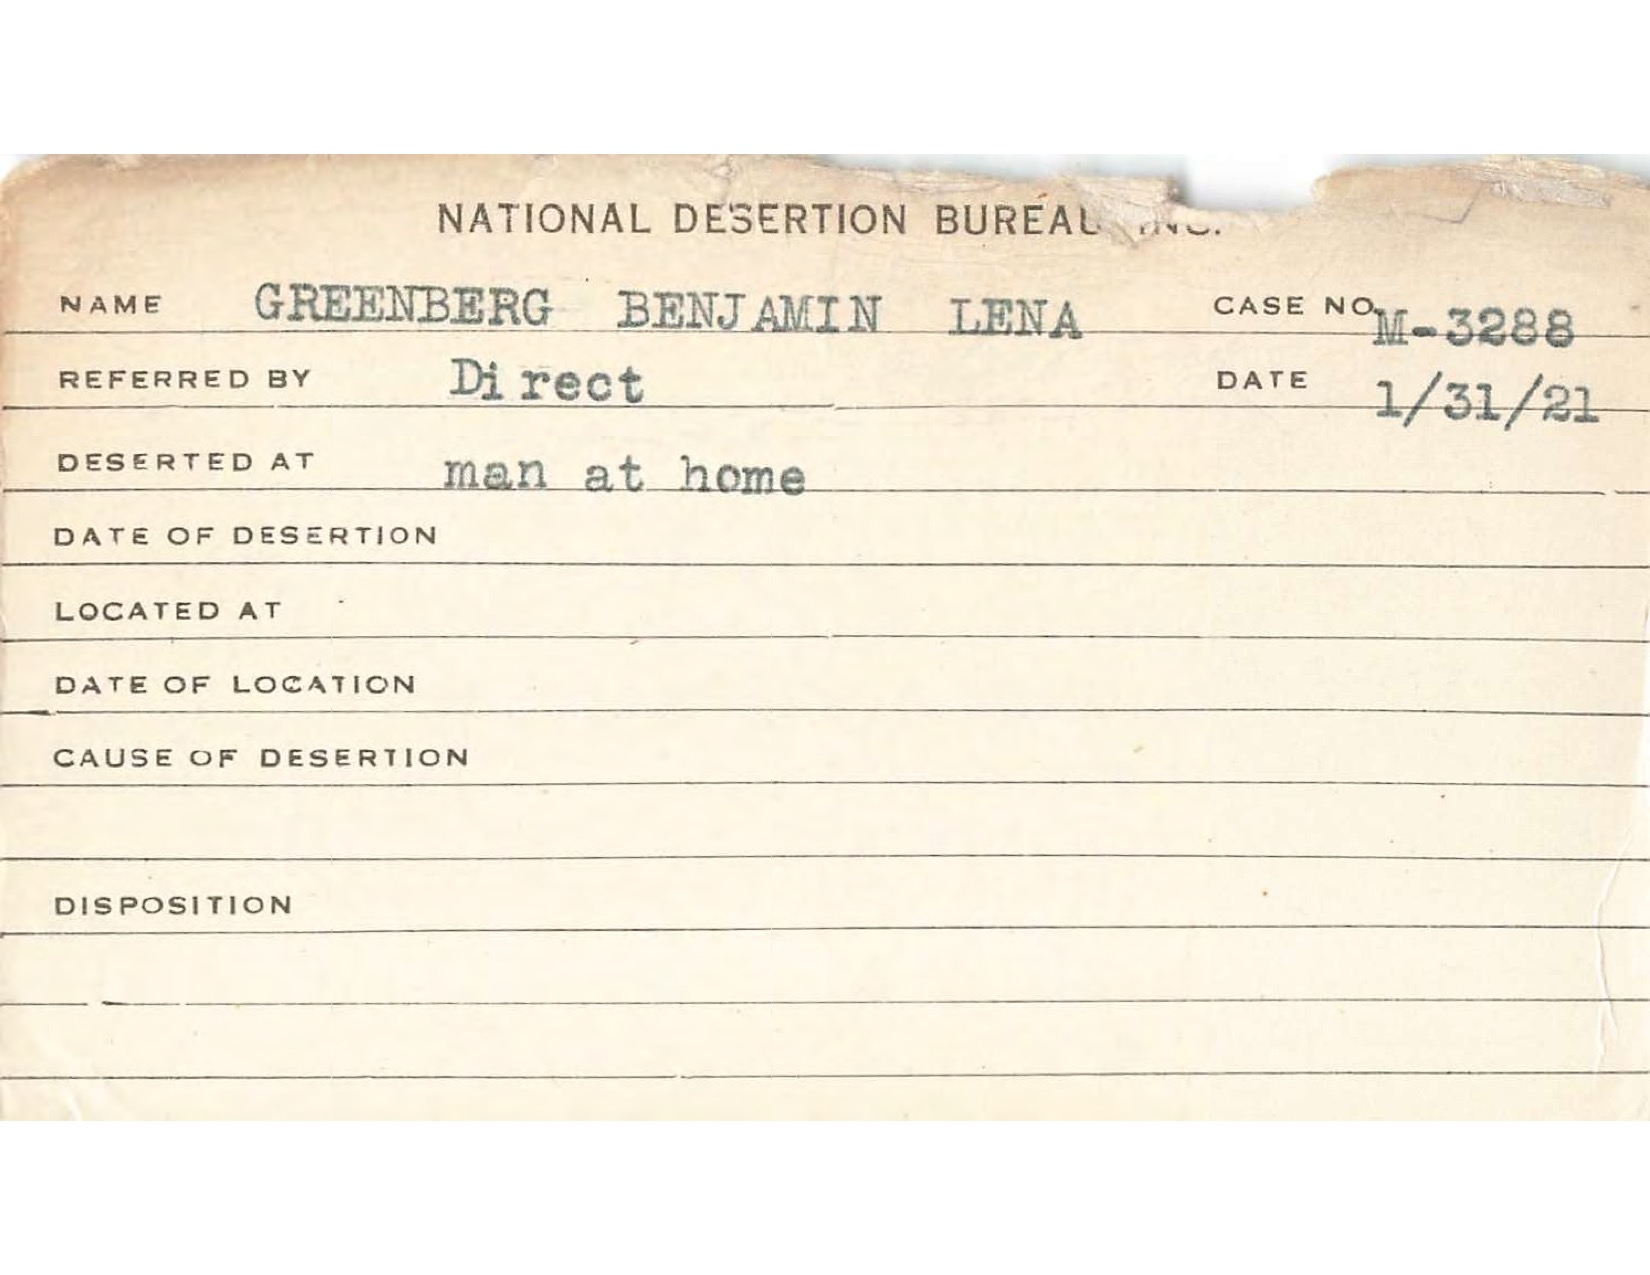 NATIONAL DESERTION BUREAU INC.
NAME GREENBERG BENJAMIN LENA CASE NO. M-3288
REFERRED BY Direct DATE 1/31/21
DESERTED AT man at home
DATE OF DESERTION
LOCATED AT
DATE OF LOCATION
CAUSE OF DESERTION
DISPOSITION